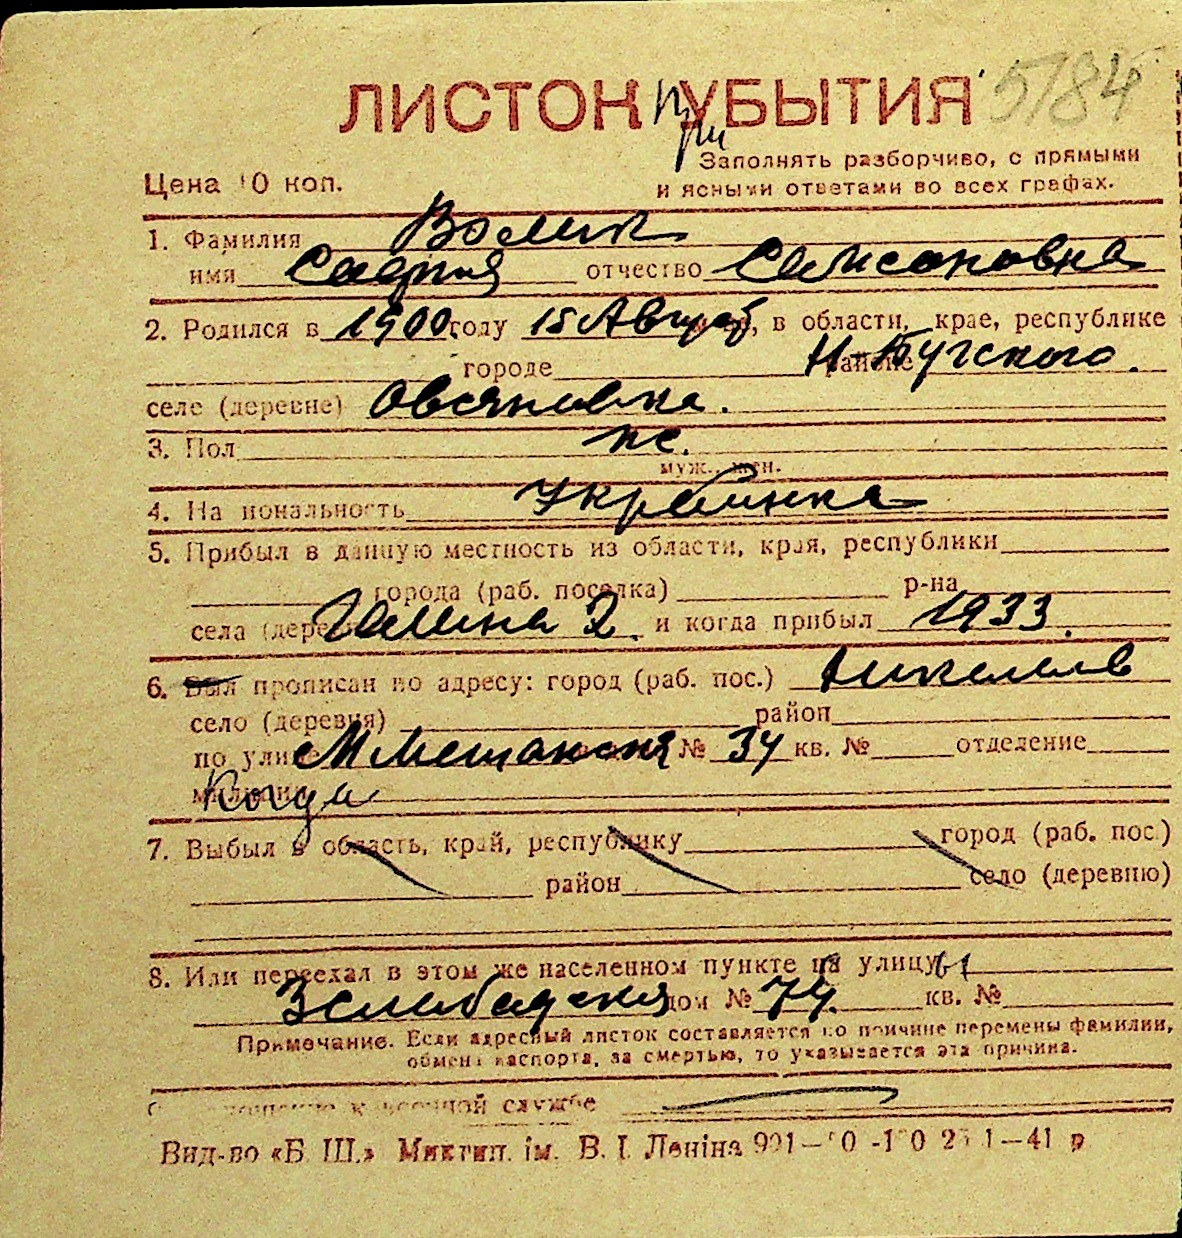 ЛИСТОК УБЫТИЯ 5184
При
Заполнять разборчиво, с прямыми
Цена 10 коп. и ясными ответами во всех графах.
1. Фамилия Волик
имя София отчество Самсоновна
2. Родился в 1900 году 15 Август, в области, крае, республике
городе районе Н-Бугского.
селе (деревне) Овсяновка.
3. Пол же.
муж., жен.
4. Национальность Украинка
5. Прибыл в данную местность из области, края, республики
города (раб. поселка) р-на
села 2. и когда прибыл 1933.
6. Был прописан по адресу: город (раб. пос.) Николаев
село (деревня) район
по улице М Мещанская № 34 кв. № отделение
милиции
7. Выбыл в область, край, республику город (раб. пос.)
район село (деревню)
8. Или переехал в этом же населенном пункте на улицу
Слободская дом № 74. кв. №
Примечание. Если адресный листок составляется по причине перемены фамилии,
обмена паспорта, за смертью, то указывается эта причина.
к военной службе
Вид-во «Б. Ш.» Миктип. ім. В. І. Леніна